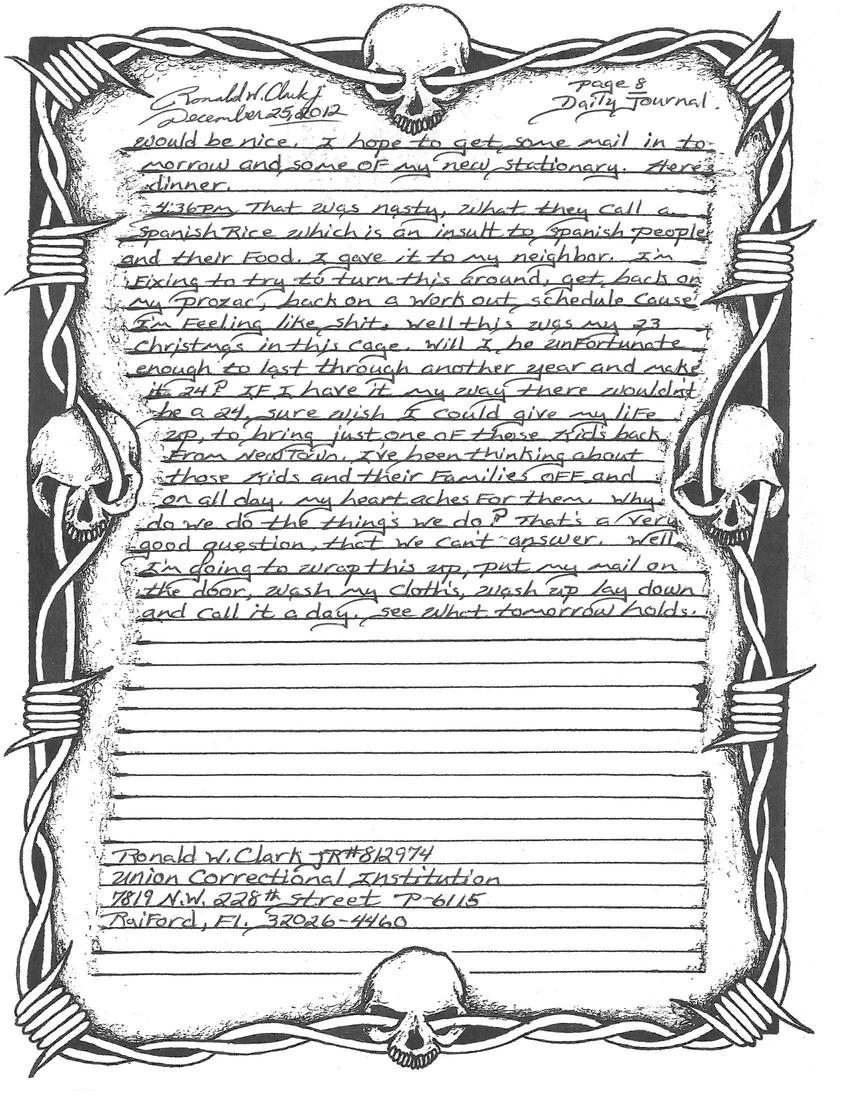 Ronald W. Clark Jr
December 25, 2012
page 8
Daily Journal.
would be nice. I hope to get some mail in to-
morrow and some OF my new stationary. Here's
dinner.
4:36pm That was nasty, what they call a
Spanish Rice which is an insult to Spanish People
and their Food. I gave it to my neighbor. I'm
Fixing to try to turn this around, get back on
my prozac, back on a work out schedule cause
I'm Feeling like shit. Well this was my 23
Christmas in this cage. Will I be unFortunate
enough to last through another year and make
it 24? IF I have it my way there wouldn't
be a 24, sure wish I could give my liFe
up, to bring just one oF those Kids back
From NewTown. I've been thinking about
those Kids and their Families oFF and
on all day. My heart aches For them. Why
do we do the thing's we do? That's a very
good question, that we can't answer. Well
I'm going to wrap this up, put my mail on
the door, wash my cloth's, wash up lay down
and call it a day. See what tomorrow holds.
Ronald W. Clark JR #812974
Union Correctional Institution
7819 N.W. 228th Street P-6115
RaiFord, Fl. 32026-4460